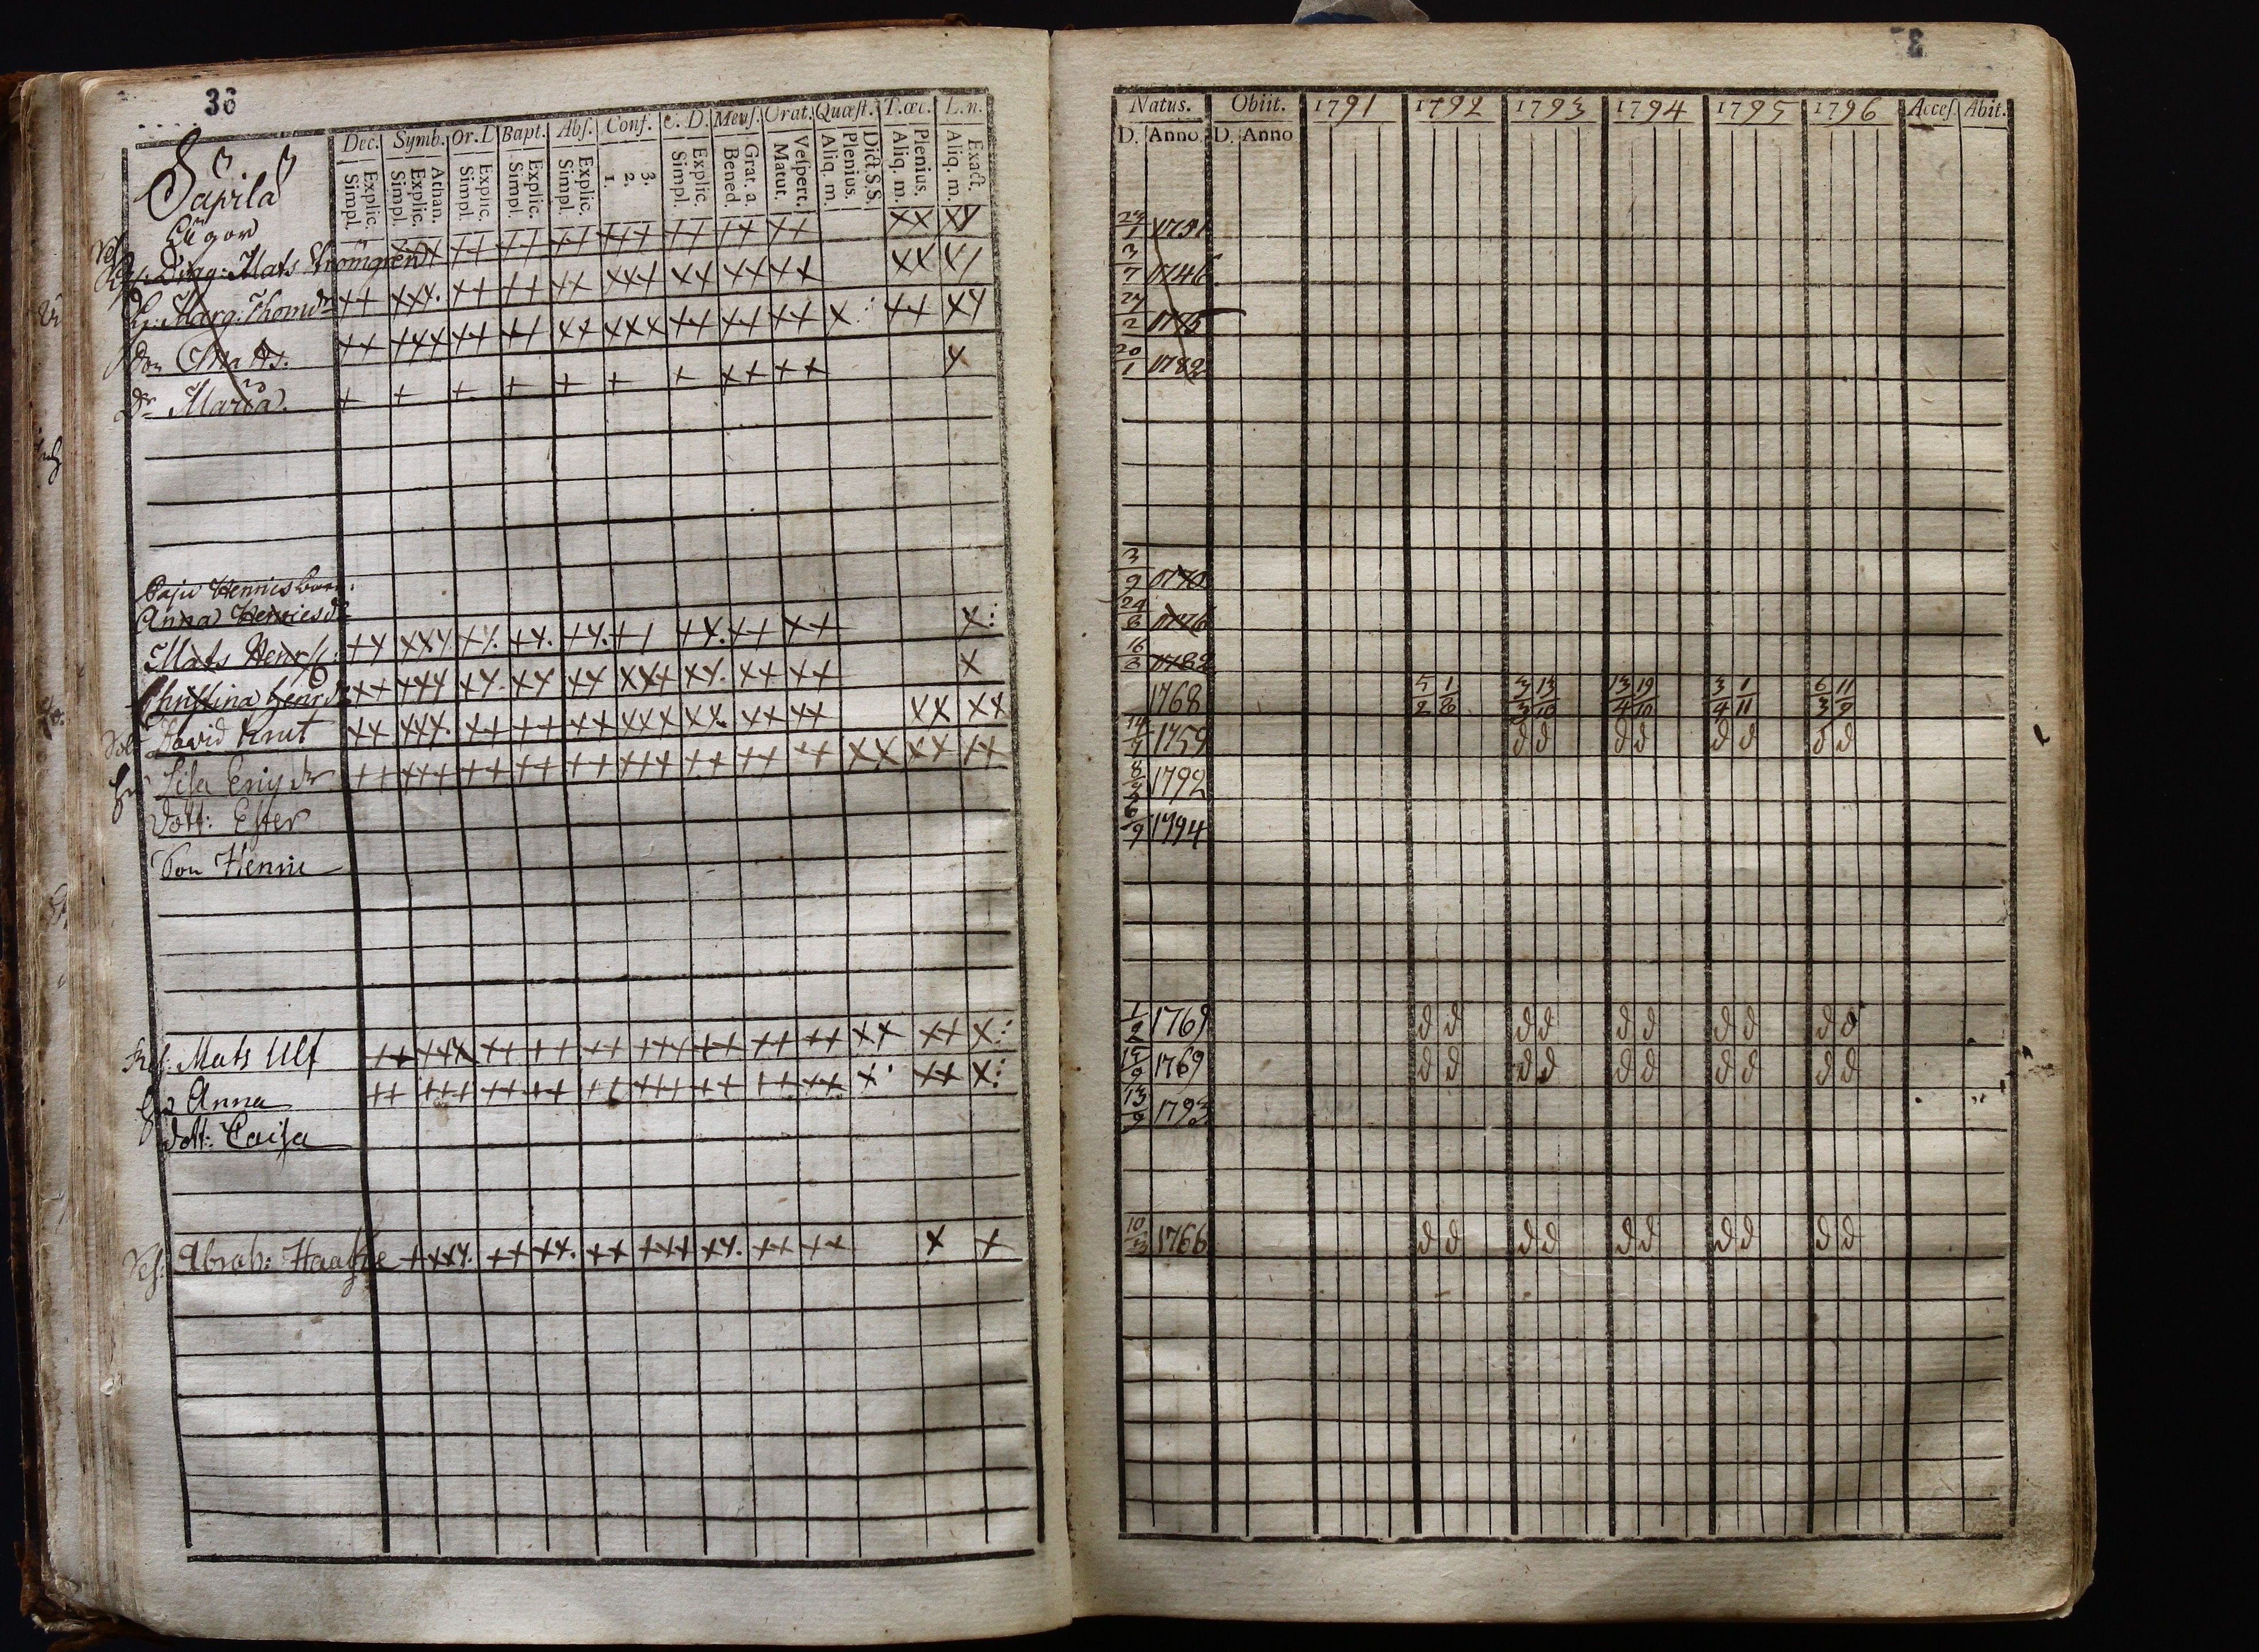 36
Sapila
Lägor
Dec. Symb. Or. D Bapt. Abs. Conf. C. D. Mens. Orat. Quæst. T. œc. L. n.
Explic. Simpl. Athan. Explic. Simpl. Explic. Simpl. Explic. Simpl. Explic. Simpl. 3. 2. 1. Explic. Simpl. Grat. a. Bened. Vespert. Matut. Dict. S.S. Plenius. Aliq. m. Plenius. Aliq. m. Exact. Aliq. m.
Mats Strömgren
H: Marg: Thomdr
Son Matts.
Dr Maria.
Paju Hennis barn:
Anna Henricsdr
Mats Henrss:
Christina Henrdr
David Knut
Lisa Ericsdr
Dott: Ester
Son Henric
Mats Ulf
Hu Anna
Dott: Caisa
Abrah: Haapke
3
Natus. Obiit. 1791 1792 1793 1794 1795 1796 Acces. Abit.
D. Anno D. Anno
24/1 1751
3/7 1746
24/2 1775
20/1 1782
3/9 1770
24/8 1776
16/8 1782
1768 5/2 1/8 3/3 13/10 13/4 19/10 3/4 1/11 6/3 11/9
14/7 1759 d d d d d d d d
8/2 1792
6/9 1794
1/2 1769 d d d d d d d d d d
15/9 1769 d d d d d d d d d d
13/9 1793
10/3 1766 d d d d d d d d d d